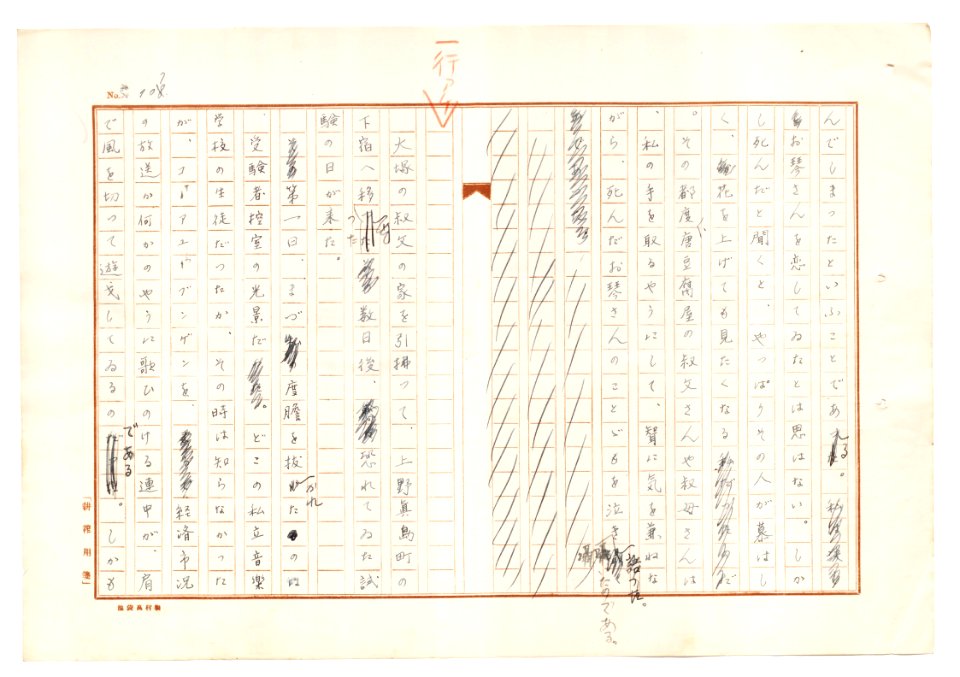 一行アケ
No.
んでしまつたといふことである。
お琴さんを恋してゐたとは思はない。しか
し死んだと聞くと、やつぱりその人が慕はし
く、花を上げても見たくなる
。その都度唐豆腐屋の叔父さんや叔母さんは
、私の手を取るやうにして、智に気を兼ねな
がら、死んだお琴さんのことどもを泣き語つた。
たのである。
大塚の叔父の家を引揚つて、上野真島町の
下宿へ移つた数日後、恐れてゐた試
験の日が来た。
第一日、まづ度膽を抜かれたのは
受験者控室の光景だ。どこの私立音楽
学校の生徒だつたか、その時は知らなかつた
が、コールアユーブンゲンを、経済市況
の放送か何かのやうに歌ひのける連中が、肩
で風を切つて遊弋してゐるのである。しかも
「耕莾用箋」